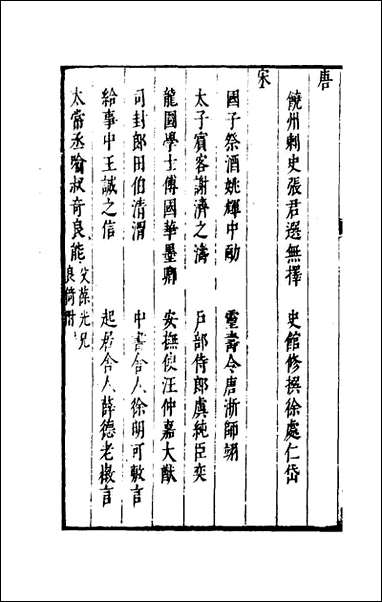 唐
饒州刺史張君選無擇 史館修撰徐處仁岱
宋
國子祭酒姚輝中勔 靈壽令唐浙師翊
太子賓客謝濟之濤 戶部侍郎虞純臣奕
龍圖學士傅國華墨卿 安撫使汪仲嘉大猷
司封郎田伯清渭 中書舍人徐明可敷言
給事中王誠之信 起居舍人薛德老徽言
太常丞喻叔奇良能
父葆光兄
良倚附